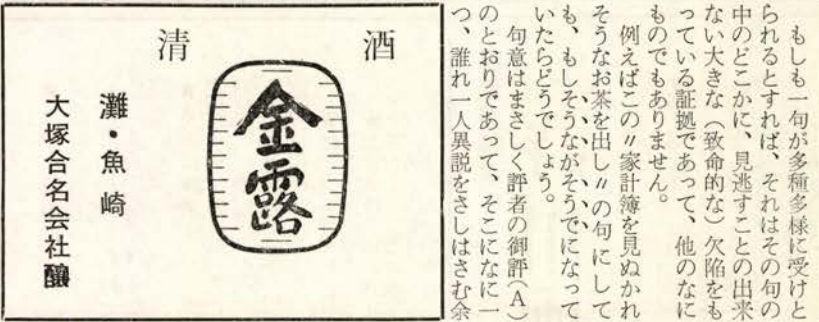 もしも一句が多種多様に受けと
られるとすれば、それはその句の
中のどこかに、見逃すことの出来
ない大きな（致命的な）欠陥をも
っている証拠であって、他のなに
ものでもありません。
例えばこの〃家計簿を見ぬかれ
そうなお茶を出し〃の句にして
も、もしそうながそうでになって
いたらどうでしょう。
句意はまさしく評者の御評（A）
のとおりであって、そこになに一
つ、誰れ一人異説をさしはさむ余
清酒
金露
灘・魚崎
大塚合名会社醸